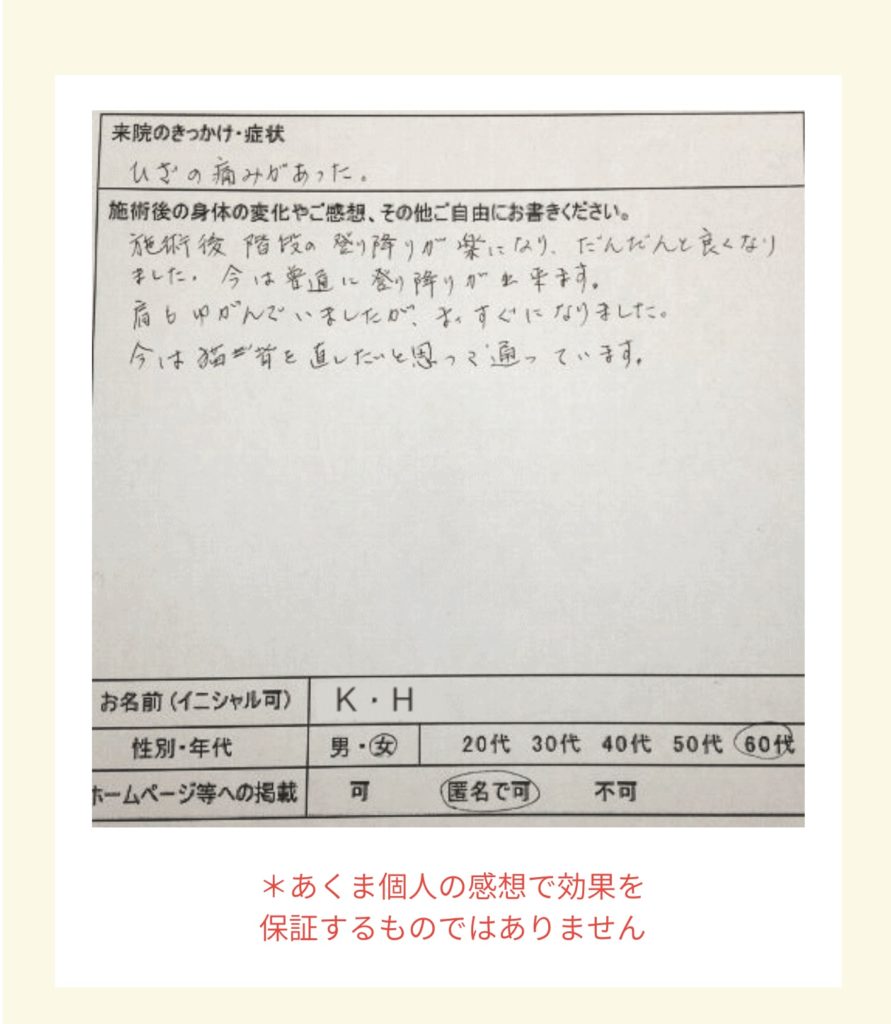 来院のきっかけ・症状
ひざの痛みがあった。
施術後の身体の変化やご感想、その他ご自由にお書きください。
施術後 階段の登り降りが楽になり、だんだんと良くなり
ました。今は普通に登り降りが出来ます。
肩もゆがんでいましたが、まっすぐになりました。
今は猫背を直したいと思って通っています。
お名前（イニシャル可） K・H
性別・年代 男・女 20代 30代 40代 50代 60代
ホームページ等への掲載 可 匿名で可 不可
＊あくま個人の感想で効果を
保証するものではありません